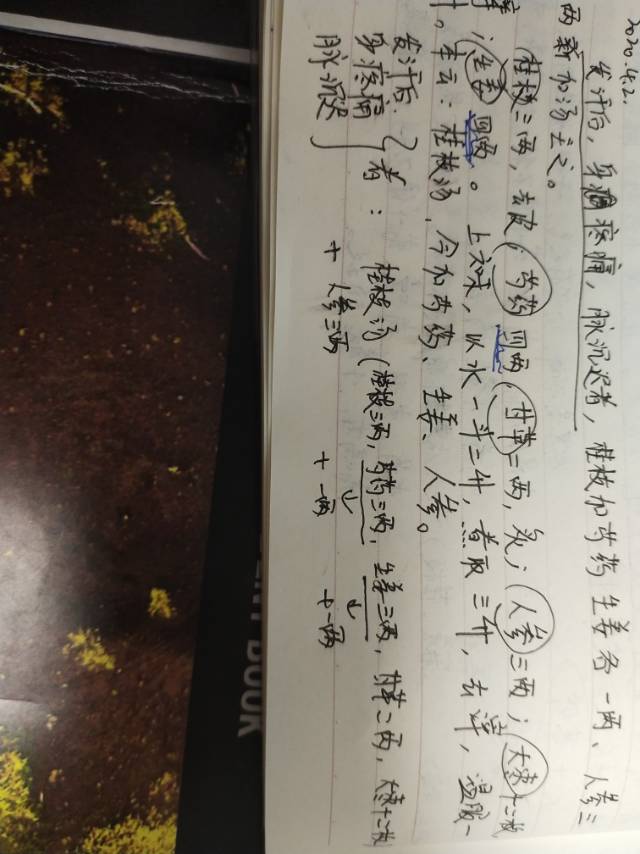 2020.4.2.
发汗后,身疼痛,脉沉迟者,桂枝加芍药生姜各一两、人参三
两新加汤主之。
桂枝三两,去皮;芍药四两;甘草二两,炙;人参三两;大枣十二枚
擘;生姜四两。上六味,以水一斗二升,煮取三升,去滓,温服一
升。本云:桂枝汤,今加芍药、生姜、人参。
发汗后
身疼痛
脉沉迟
者:
桂枝汤(桂枝三两,芍药三两,生姜三两,甘草二两,大枣十二枚
+人参三两 +一两 +一两
BOOK